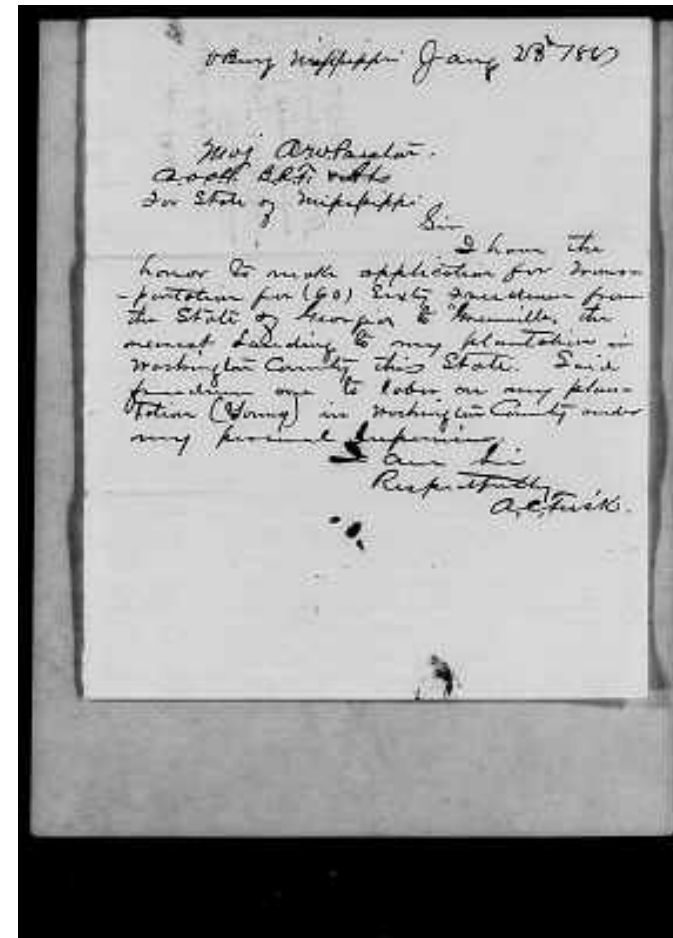 VBurg Mississippi Jany 28th 1867
Maj A W Preston.
A.A.A.G. B.R.F. & A Lds
For State of Mississippi
Sir
I have the
honor to make application for trans=
=portation for (60) Sixty Freedmen from
the State of Georgia to Greenville, the
nearest Landing to my plantation in
Washington County this State. Said
freedmen are to labor on my plan=
tation (Young) in Washington County under
my personal supervision.
I am Sir
Respectfully
A. C. Fisk.